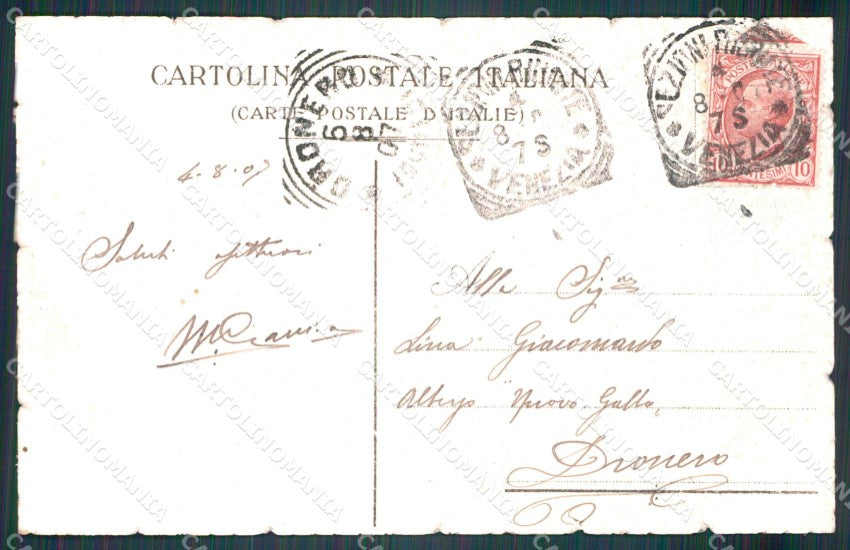 CARTOLINA POSTALE ITALIANA
(CARTE POSTALE D'ITALIE)
DRONERO
6 8 07
8 7S
VENEZIA
8 7S
VENEZIA
POSTE ITALIANE
CENTESIMI 10
4.8.07
Saluti affettuosi
Alla Sig.na
Lina Giacomardo
Albergo "Nuovo Gallo"
Dronero
CARTOLINOMANIA